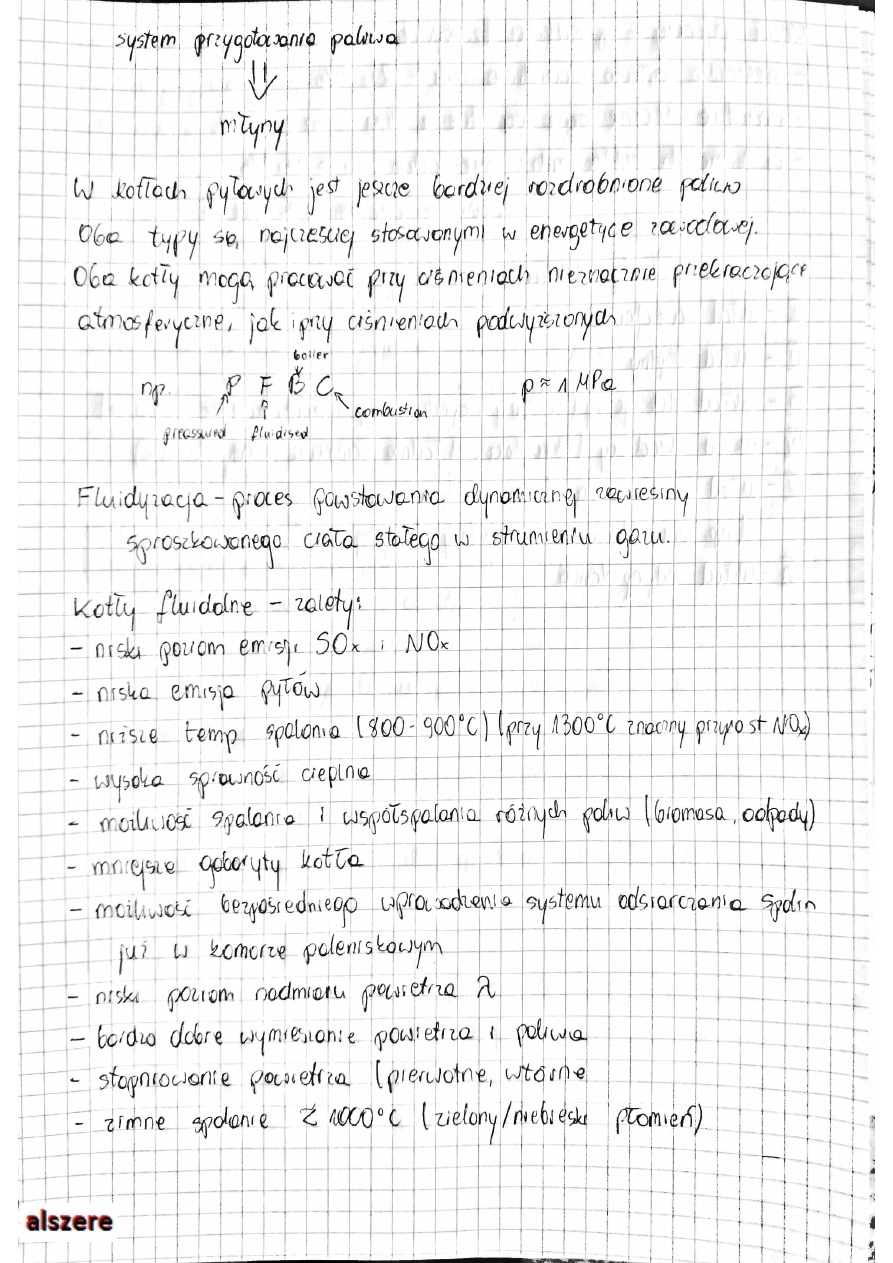 system przygotowania paliwa
⇓
młyny
W kotłach pyłowych jest jeszcze bardziej rozdrobnione paliwo
Oba typy są najczęściej stosowanymi w energetyce zawodowej.
Oba kotły mogą pracować przy ciśnieniach nieznacznie przekraczające
atmosferyczne, jak i przy ciśnieniach podwyższonych
boiler
np. P F B C p ≈ 1 MPa
combustion
preassured fluidised
Fluidyzacja - proces powstawania dynamicznej zawiesiny
sproszkowanego ciała stałego w strumieniu gazu.
Kotły fluidalne - zalety:
- niski poziom emisji SOx i NOx
- niska emisja pyłów
- niższe temp spalania (800-900°C) (przy 1300°C znaczny przyrost NOx)
- wysoka sprawność cieplna
- możliwość spalania i współspalania różnych paliw (biomasa, odpady)
- mniejsze gabaryty kotła
- możliwość bezpośredniego wprowadzenia systemu odsiarczania spalin
już w komorze paleniskowym
- niski poziom nadmiaru powietrza λ
- bardzo dobre wymieszanie powietrza i paliwa
- stopniowanie powietrza (pierwotne, wtórne
- zimne spalanie 1000°C (zielony/niebieski płomień)
alszere